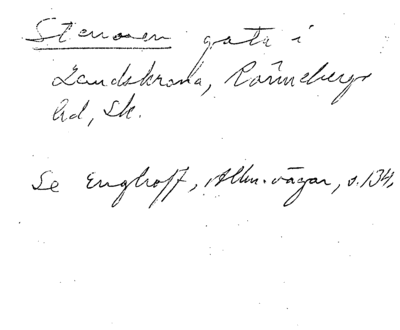 Stenosen gata i
Landskrona, Rönnebergs
hd, Sk.
Se Enghoff, Allm. vägar, s. 134.